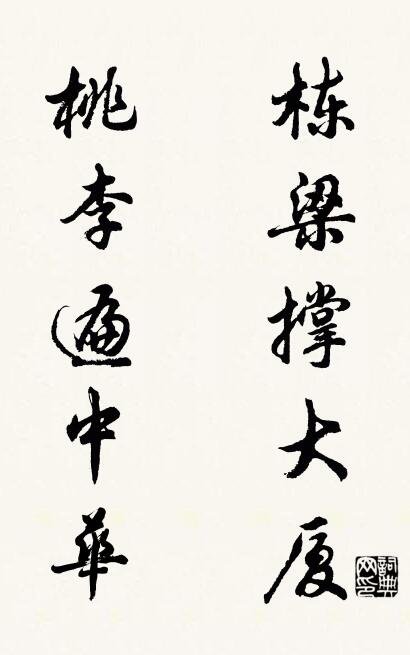 栋梁撑大厦
桃李遍中華
詞典
网印